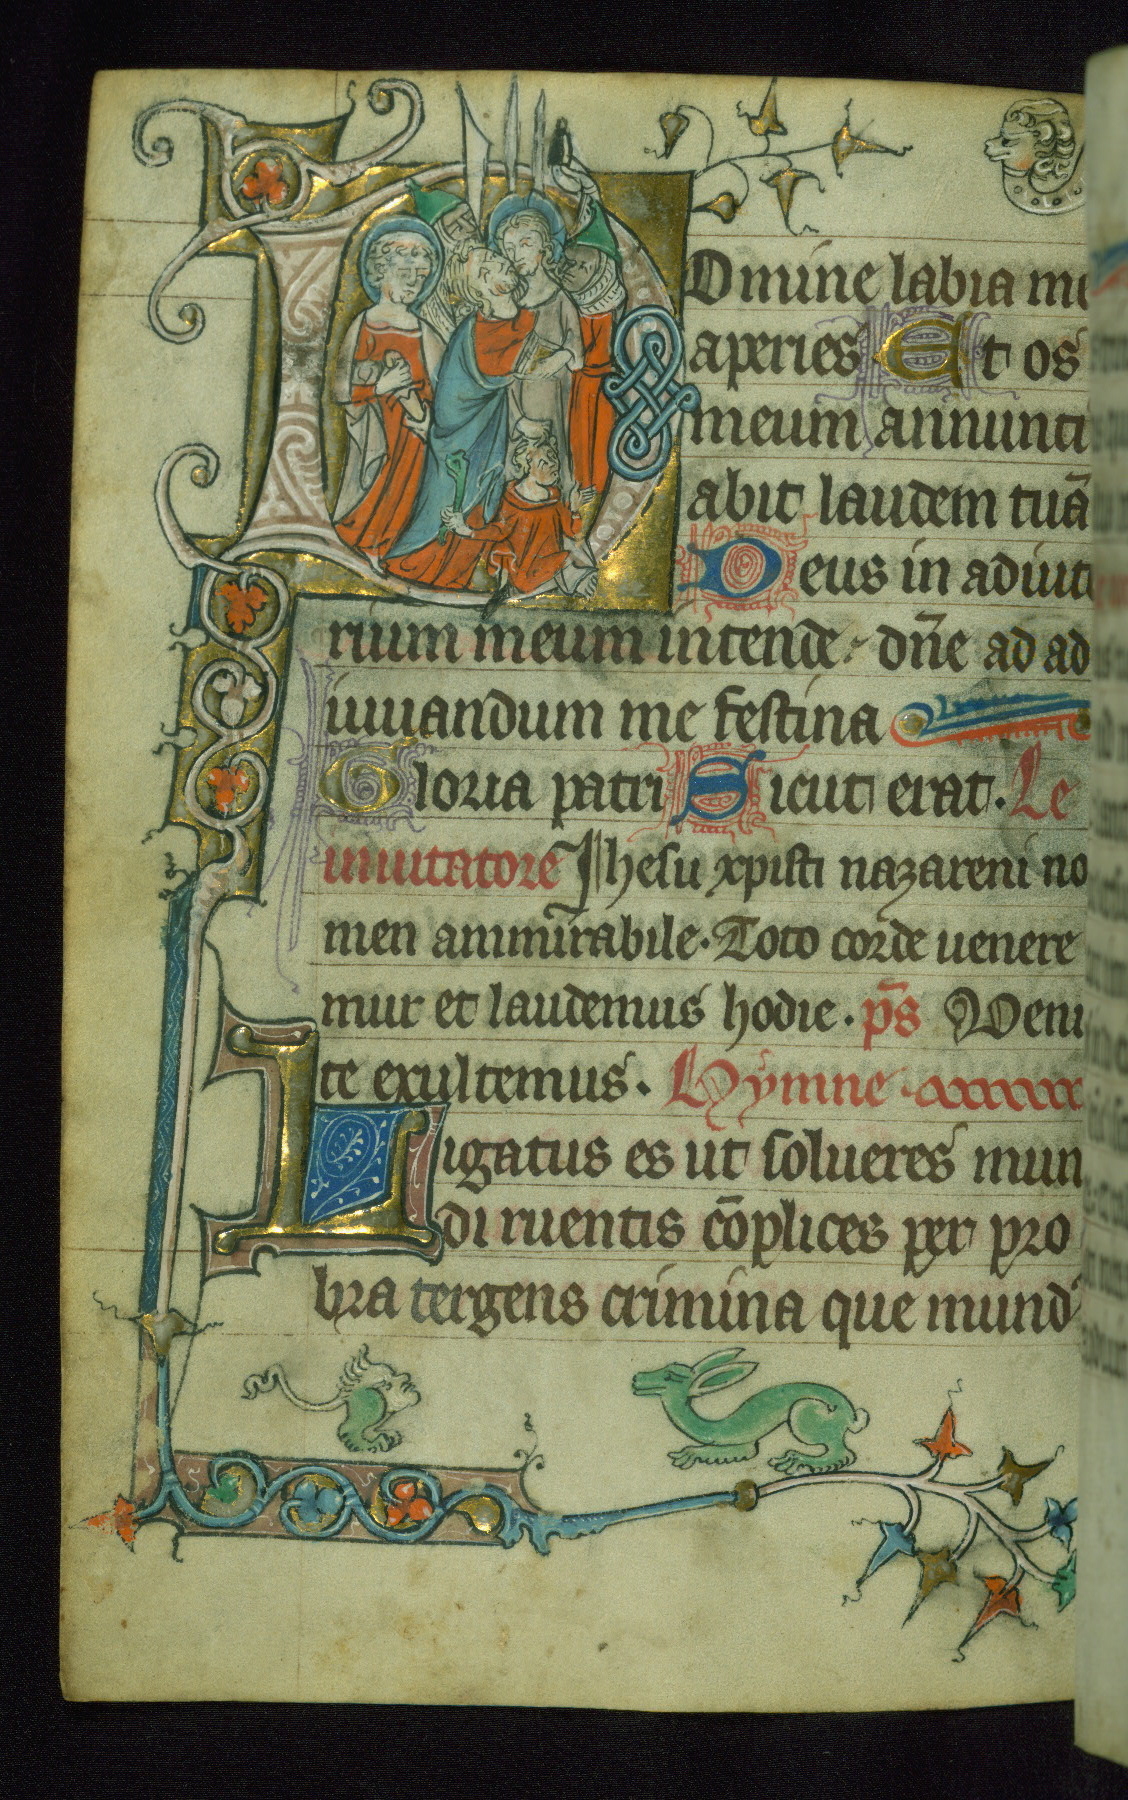 Domine labia me
aperies Et os
meum annunti
abit laudem tuā
Deus in adiuto
rium meum intende · dn̄e ad ad
iuuandum me festina
Gloria patri Sicut erat · Le
inuitatore Jhesu xpisti nazareni no
men ammirabile · Toto corde uenere
mur et laudemus hodie · p̄s Veni
te exultemus · Hymne ·
Ligatus es ut solueres mun
di ruentis cōplices per pro
bra tergens crimina que mund'